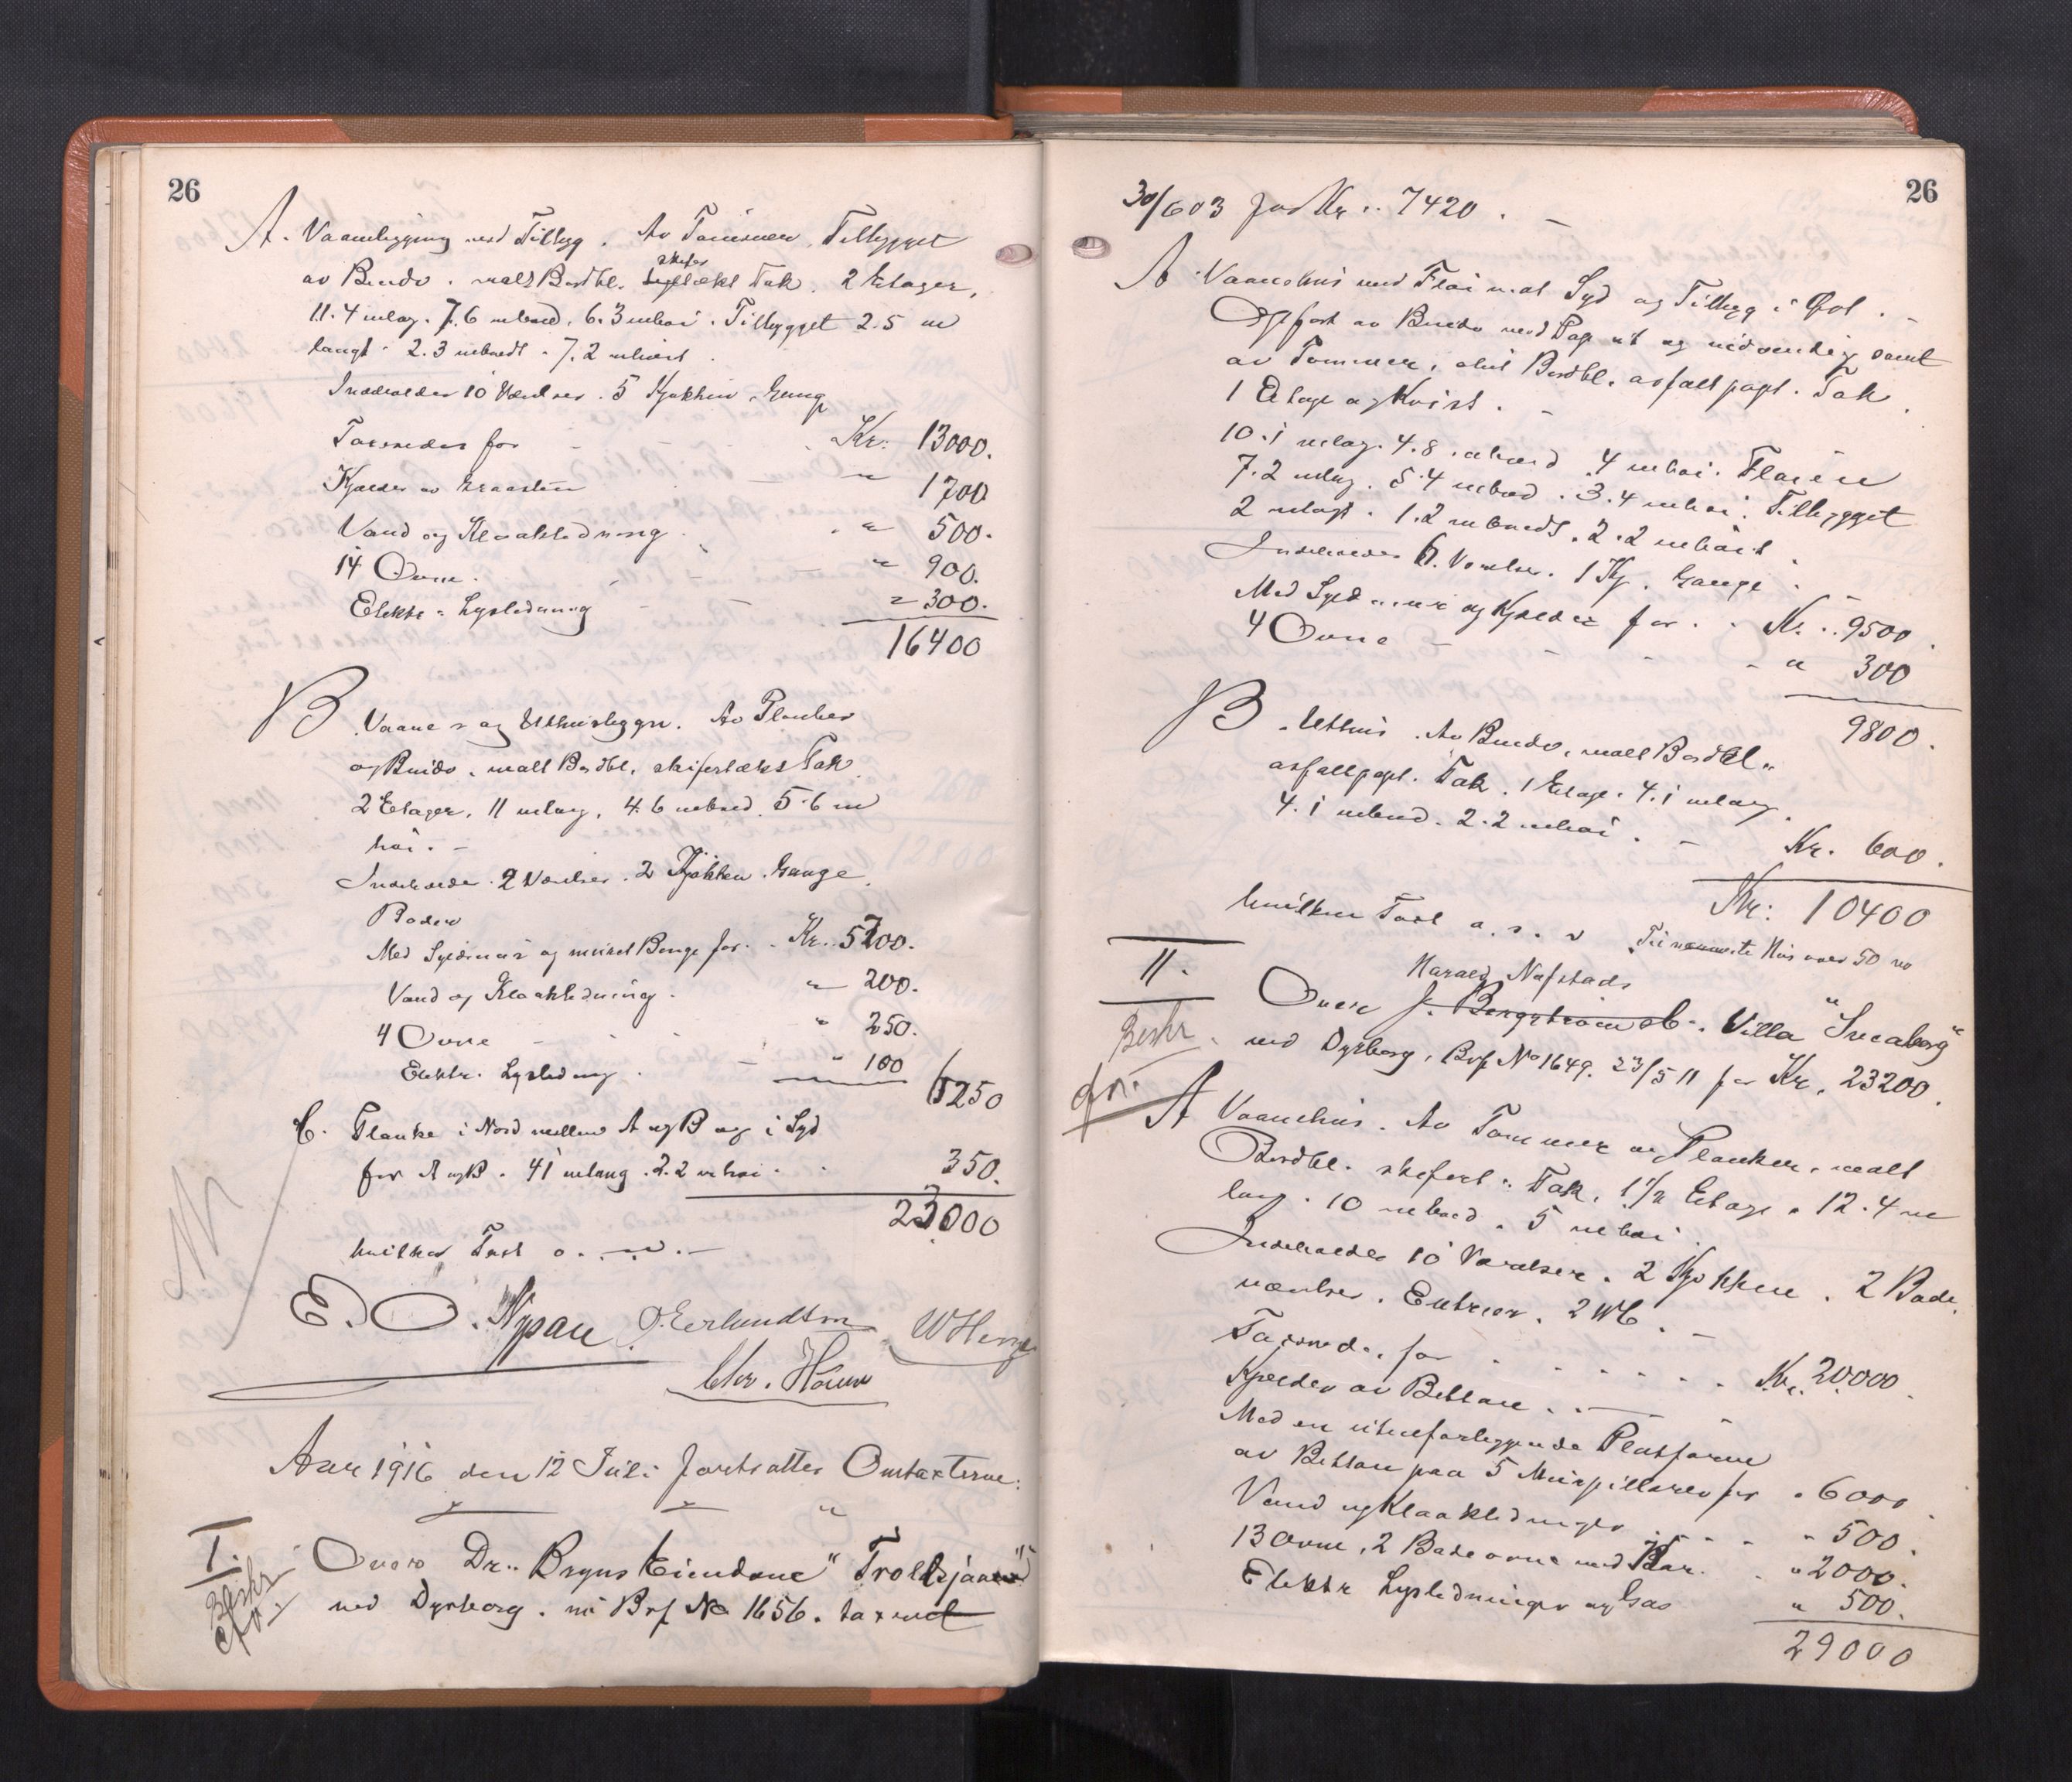 26
A. Vaanebygning med Tilbyg. Av Tømmer, Tilbygget
skifer
av Bindv. malt Bordbl. tækt Tak. 2 Etager,
11.4 m lang. 7.6 m bred. 6.3 m høi. Tilbygget 2.5 m
langt. 2.3 m bredt. 7.2 m høit.
Indeholder 10 Værelser. 5 Kjøkken, Gang
Taxeredes for Kr. 13000.
Kjælder av Graasten " 1700
Vand og Kloakledning " 500.
14 Ovne. " 900.
Elektr. Lysledning " 300.
16400
B Vaane- og Uthusbygn. Av Planker
og Bindv. malt Bordbl, skifertækt Tak
2 Etager, 11 m lang, 4.6 m bred. 5.6 m
høi. -
Indeholder. 2 Værelser. 2 Kjøkken. Gange
Boder
Med Syldmur og muret Benge for. Kr. 5700.
Vand og Kloakledning. " 200.
4 Ovne " 250.
Elektr. Lysledning. " 100
6250
C. Planke i Nord mellem A og B og i Syd
for A og B. 41 m lang. 2.2 m høi. 350.
23000
hvilken Taxt o. s. v. -
E. O. Nypan O. Erlundson W Herm
Chr. Høium
Aar 1916 den 12 Juli fortsattes Omtaxterne:
I. Over Dr. Bryns Eiendom "Troldsjåen"
Beskr
ved Dyrborg. ny Brf No 1656. taxeret
26
30/6 03 for Kr. 7420. -
A Vaanehus med Fløi mot Syd og Tilbyg i Øst. -
Opført av Bindv med Pap ut og indvendig samt
av Tømmer, utv. Bordbl. asfaltpapt. Tak
1 Etage og Kvist. -
10.1 m lang. 4.8 m bred. 4 m høi. Fløien
7.2 m lang. 5.4 m bred. 3.4 m høi. Tilbygget
2 m langt. 1.2 m bredt. 2.2 m høit.
Indeholder 6 Værelser. 1 Kj. Gange.
Med Syldmur og Kjælder for. Kr. 9500.
4 Ovne " 300
9800.
B. Uthus. Av Bindv, malt Bordbl.
asfaltpapt. Tak. 1 Etage. 4.1 m lang
4.1 m bred. 2.2 m høi. - Kr. 600.
Kr: 10400
hvilken Taxt o. s. v Til nærmeste Hus over 50 m
II. Harald Nafstads
Over J. Bergstrøm Villa "Sneaborg"
Beskr. ved Dyrborg, Brf No 1649. 23/5 11 for Kr. 23200.
A Vaanehus. Av Tømmer og Planker, malt
Bordbl. skifert. Tak. 1 1/2 Etage. 12.4 m
lang. 10 m bred. 5 m høi.
Indeholder 10 Værelser. 2 Kjøkken. 2 Bade-
værelser. Entreer. 2 WC. -
Taxeredes for Kr. 20000.
Kjælder av Bettong. -
Med en utenforliggende Platform
av Bettong paa 5 Murpillarer for " 6000
Vand og Kloakledninger " 500.
13 Ovne, 2 Badeovne med Kar. " 2000.
Elektr Lysledninger og Gas " 500.
29000